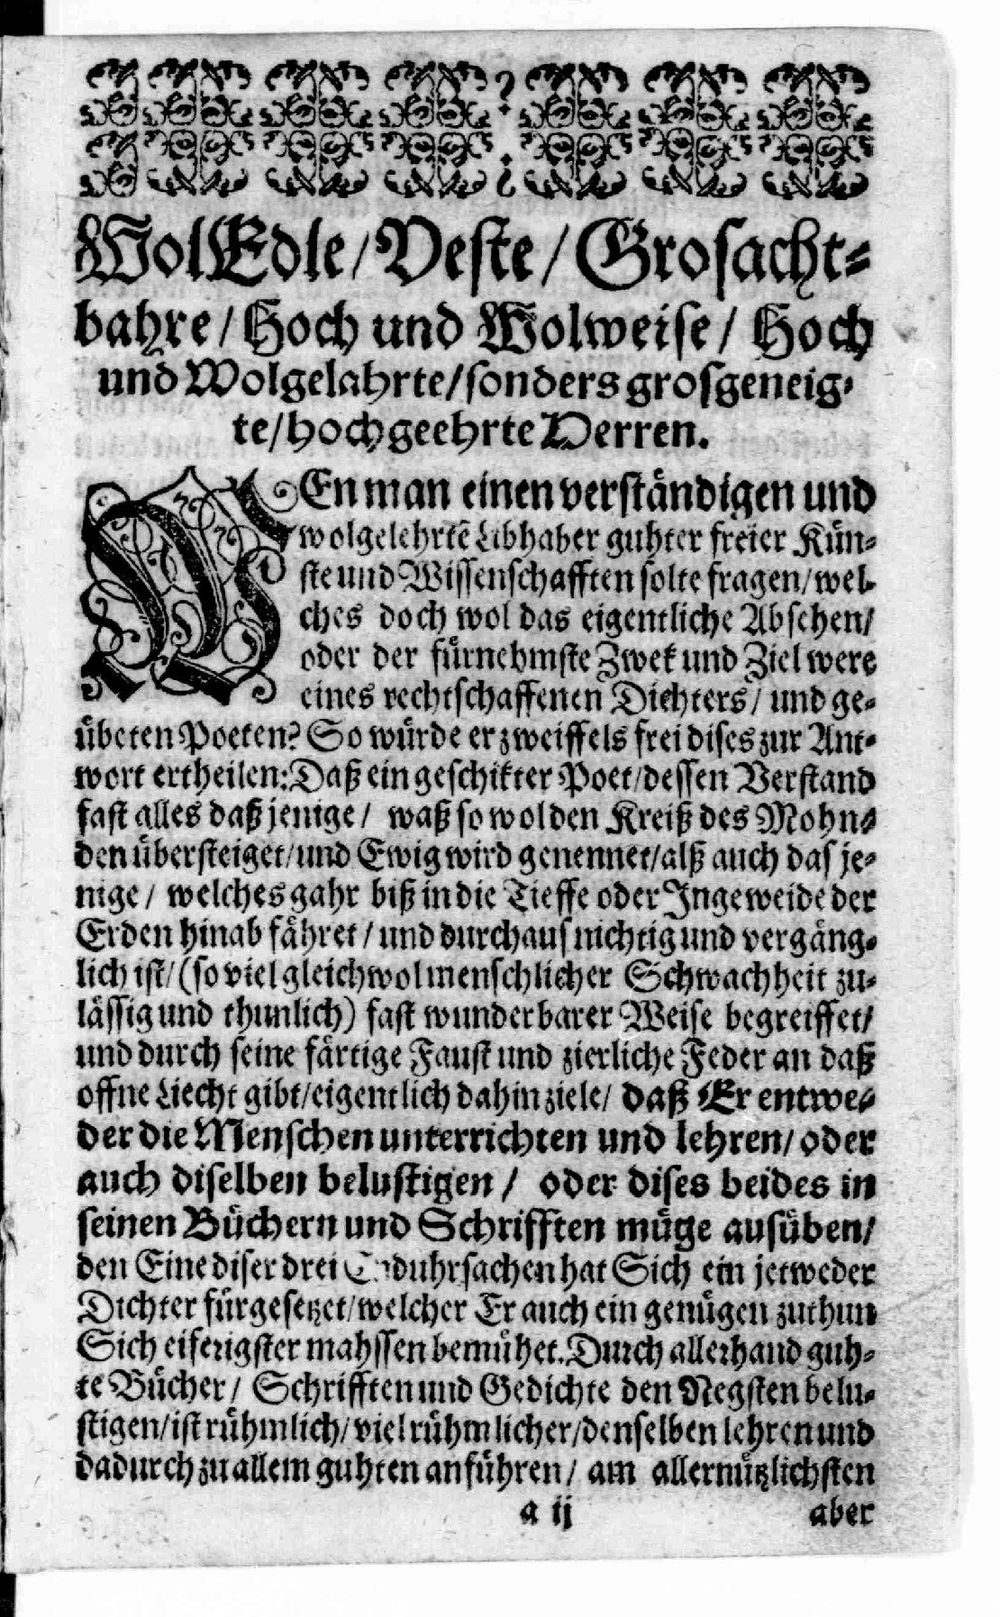 WolEdle / Veste / Grosacht-
bahre / Hoch und Wolweise / Hoch
und Wolgelahrte / sonders grosgeneig-
te / hochgeehrte Herren.
WEn man einen verständigen und
wolgelehrtẽ Libhaber guhter freier Kün-
ste und Wissenschafften solte fragen / wel-
ches doch wol das eigentliche Absehen /
oder der fürnehmste Zwek und Ziel were
eines rechtschaffenen Dichters / und ge-
übeten Poeten? So würde er zweiffels frei dises zur Ant-
wort ertheilen: Daß ein geschikter Poet / dessen Verstand
fast alles daßjenige / waß so wol den Kreiß des Mohn-
den übersteiget / und Ewig wird genennet / alß auch das je-
nige / welches gahr biß in die Tieffe oder Ingeweide der
Erden hinab fähret / und durchaus nichtig und vergäng-
lich ist / (so viel gleichwol menschlicher Schwachheit zu-
lässig und thunlich) fast wunderbarer Weise begreiffet /
und durch seine färtige Faust und zierliche Feder an daß
offne Liecht gibt / eigentlich dahin ziele / daß Er entwe-
der die Menschen unterrichten und lehren / oder
auch diselben belustigen / oder dises beides in
seinen Büchern und Schrifften müge ausüben /
den Eine diser drei Enduhrsachen hat Sich ein jetweder
Dichter fürgesetzet / welcher Er auch ein genügen zuthun
Sich eiferigster mahssen bemühet. Durch allerhand guh-
te Bücher / Schrifften und Gedichte den Negsten belu-
stigen / ist rühmlich / viel rühmlicher / denselben lehren und
dadurch zu allem guhten anführen / am allernützlichsten
a ij
aber